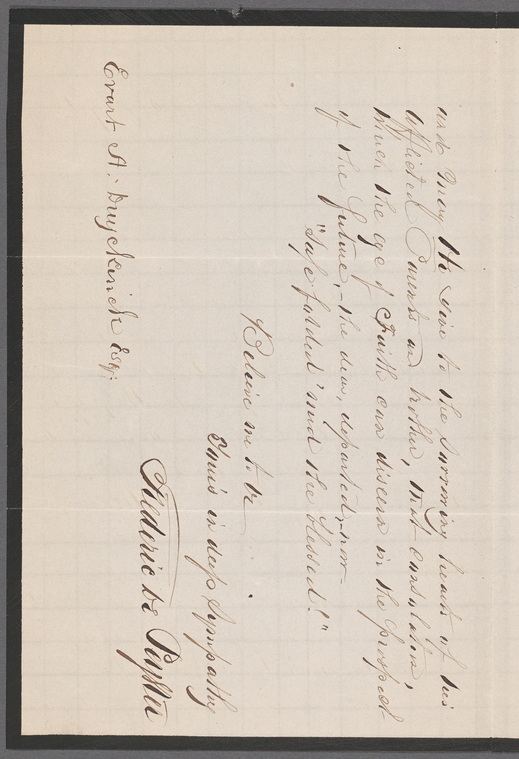 and May He give to the sorrowing hearts of his
afflicted Parents and brother, that consolation,
which the eye of Faith can discern in the prospect
of the future, - the dear, departed, now -
"Safe folded 'mid the blessed!"
Believe me to be
Yours in deep Sympathy
Frederic De Peyster
Evart A. Duyckinck Esq: